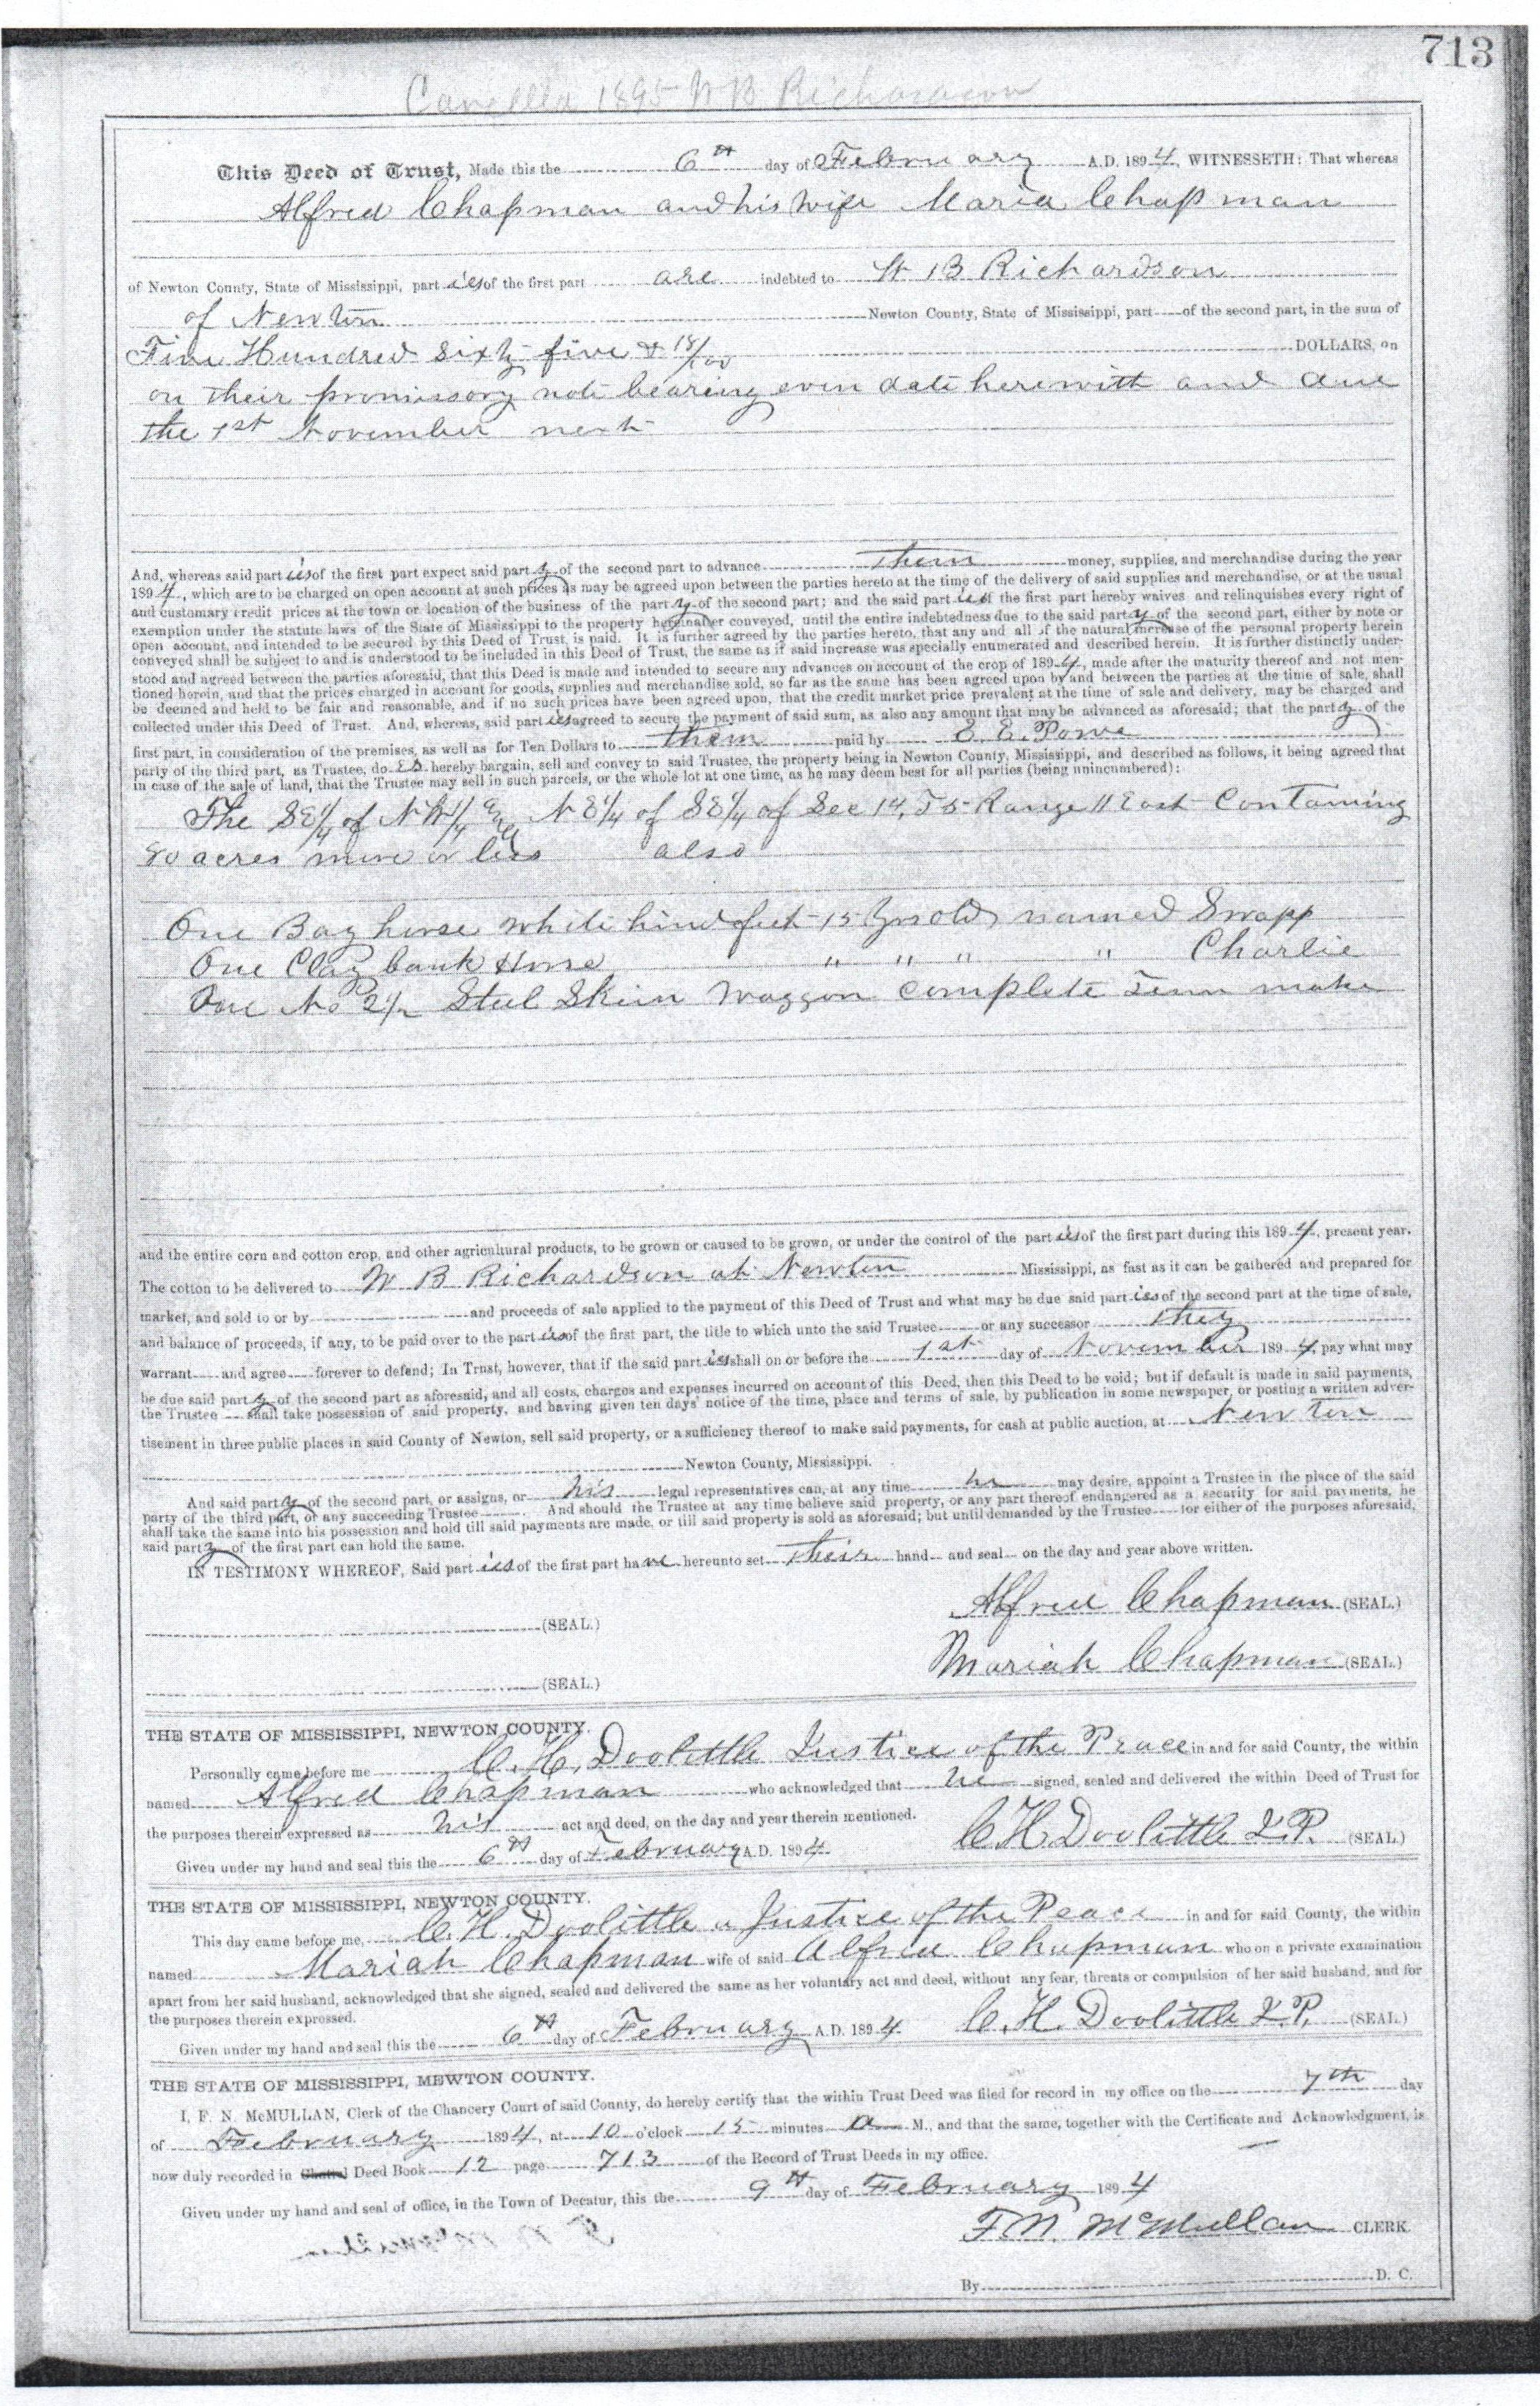 713
1895 W B Richardson
This Deed of Trust, Made this the 6th day of February A.D. 1894, WITNESSETH: That whereas
Alfred Chapman and his wife Maria Chapman
of Newton County, State of Mississippi, part ies of the first part are indebted to W B Richardson
of Newton Newton County, State of Mississippi, part of the second part, in the sum of
Five Hundred Sixty five & 18/100 DOLLARS, on
on their promissory note bearing even date herewith and due
the 1st November next
And, whereas said part ies of the first part expect said part y of the second part to advance them money, supplies, and merchandise during the year
1894, which are to be charged on open account at such prices as may be agreed upon between the parties hereto at the time of the delivery of said supplies and merchandise, or at the usual
and customary credit prices at the town or location of the business of the part y of the second part; and the said part ies of the first part hereby waives and relinquishes every right of
exemption under the statute laws of the State of Mississippi to the property hereinafter conveyed, until the entire indebtedness due to the said part y of the second part, either by note or
open account, and intended to be secured by this Deed of Trust, is paid. It is further agreed by the parties hereto, that any and all of the natural increase of the personal property herein
conveyed shall be subject to and is understood to be included in this Deed of Trust, the same as if said increase was specially enumerated and described herein. It is further distinctly under-
stood and agreed between the parties aforesaid, that this Deed is made and intended to secure any advances on account of the crop of 1894, made after the maturity thereof and not men-
tioned herein, and that the prices charged in account for goods, supplies and merchandise sold, so far as the same has been agreed upon by and between the parties at the time of sale, shall
be deemed and held to be fair and reasonable, and if no such prices have been agreed upon, that the credit market price prevalent at the time of sale and delivery, may be charged and
collected under this Deed of Trust. And, whereas, said part ies agreed to secure the payment of said sum, as also any amount that may be advanced as aforesaid; that the part y of the
first part, in consideration of the premises, as well as for Ten Dollars to them paid by E. E. Powe
party of the third part, as Trustee, do es hereby bargain, sell and convey to said Trustee, the property being in Newton County, Mississippi, and described as follows, it being agreed that
in case of the sale of land, that the Trustee may sell in such parcels, or the whole lot at one time, as he may deem best for all parties (being unincumbered):
The SE1/4 of NW1/4 & NE1/4 of SE1/4 of Sec 14, T 5 Range 11 East Containing
80 acres more or less also
One Bay horse White hind feet 15 Yrs old named Snapp
One Clay bank Horse " " " " Charlie
One No 2 1/2 Steel Skein Waggon Complete Tenn make
and the entire corn and cotton crop, and other agricultural products, to be grown or caused to be grown, or under the control of the part ies of the first part during this 1894, present year.
The cotton to be delivered to W B Richardson at Newton Mississippi, as fast as it can be gathered and prepared for
market, and sold to or by and proceeds of sale applied to the payment of this Deed of Trust and what may be due said part ies of the second part at the time of sale,
and balance of proceeds, if any, to be paid over to the part ies of the first part, the title to which unto the said Trustee or any successor they
warrant and agree forever to defend; In Trust, however, that if the said part ies shall on or before the 1st day of November 1894 pay what may
be due said part y of the second part as aforesaid, and all costs, charges and expenses incurred on account of this Deed, then this Deed to be void; but if default is made in said payments,
the Trustee shall take possession of said property, and having given ten days' notice of the time, place and terms of sale, by publication in some newspaper, or posting a written adver-
tisement in three public places in said County of Newton, sell said property, or a sufficiency thereof to make said payments, for cash at public auction, at Newton
Newton County, Mississippi.
And said part y of the second part, or assigns, or his legal representatives can, at any time he may desire, appoint a Trustee in the place of the said
party of the third part, or any succeeding Trustee. And should the Trustee at any time believe said property, or any part thereof endangered as a security for said payments, he
shall take the same into his possession and hold till said payments are made, or till said property is sold as aforesaid; but until demanded by the Trustee for either of the purposes aforesaid,
said part y of the first part can hold the same.
IN TESTIMONY WHEREOF, Said part ies of the first part have hereunto set their hand and seal on the day and year above written.
Alfred Chapman (SEAL.)
(SEAL.)
Mariah Chapman (SEAL.)
(SEAL.)
THE STATE OF MISSISSIPPI, NEWTON COUNTY.
Personally came before me C. H. Doolittle Justice of the Peace in and for said County, the within
named Alfred Chapman who acknowledged that he signed, sealed and delivered the within Deed of Trust for
the purposes therein expressed as his act and deed, on the day and year therein mentioned.
Given under my hand and seal this the 6th day of February A.D. 1894 C. H. Doolittle J.P. (SEAL)
THE STATE OF MISSISSIPPI, NEWTON COUNTY.
This day came before me, C. H. Doolittle a Justice of the Peace in and for said County, the within
named Mariah Chapman wife of said Alfred Chapman who on a private examination
apart from her said husband, acknowledged that she signed, sealed and delivered the same as her voluntary act and deed, without any fear, threats or compulsion of her said husband, and for
the purposes therein expressed.
Given under my hand and seal this the 6th day of February A.D. 1894 C. H. Doolittle J.P. (SEAL)
THE STATE OF MISSISSIPPI, MEWTON COUNTY.
I, F. N. McMULLAN, Clerk of the Chancery Court of said County, do hereby certify that the within Trust Deed was filed for record in my office on the 7th day
of February 1894, at 10 o'clock 15 minutes a M., and that the same, together with the Certificate and Acknowledgment, is
now duly recorded in Deed Book 12 page 713 of the Record of Trust Deeds in my office.
Given under my hand and seal of office, in the Town of Decatur, this the 9th day of February 1894
F. N. McMullan CLERK.
By D. C.